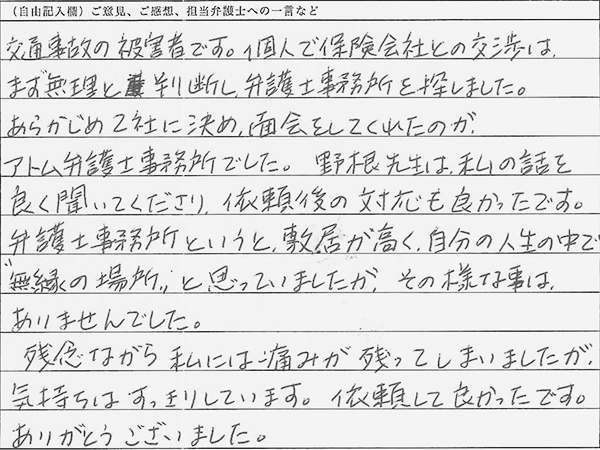 （自由記入欄）ご意見、ご感想、担当弁護士への一言など
交通事故の被害者です。個人で保険会社との交渉は、
まず無理と判断し、弁護士事務所を探しました。
あらかじめ2社に決め、面会をしてくれたのが、
アトム弁護士事務所でした。 野根先生は、私の話を
良く聞いてくださり、依頼後の対応も良かったです。
弁護士事務所というと、敷居が高く、自分の人生の中で
〝無縁の場所〟と思っていましたが、その様な事は、
ありませんでした。
残念ながら私には痛みが残ってしまいましたが、
気持ちはすっきりしています。依頼して良かったです。
ありがとうございました。